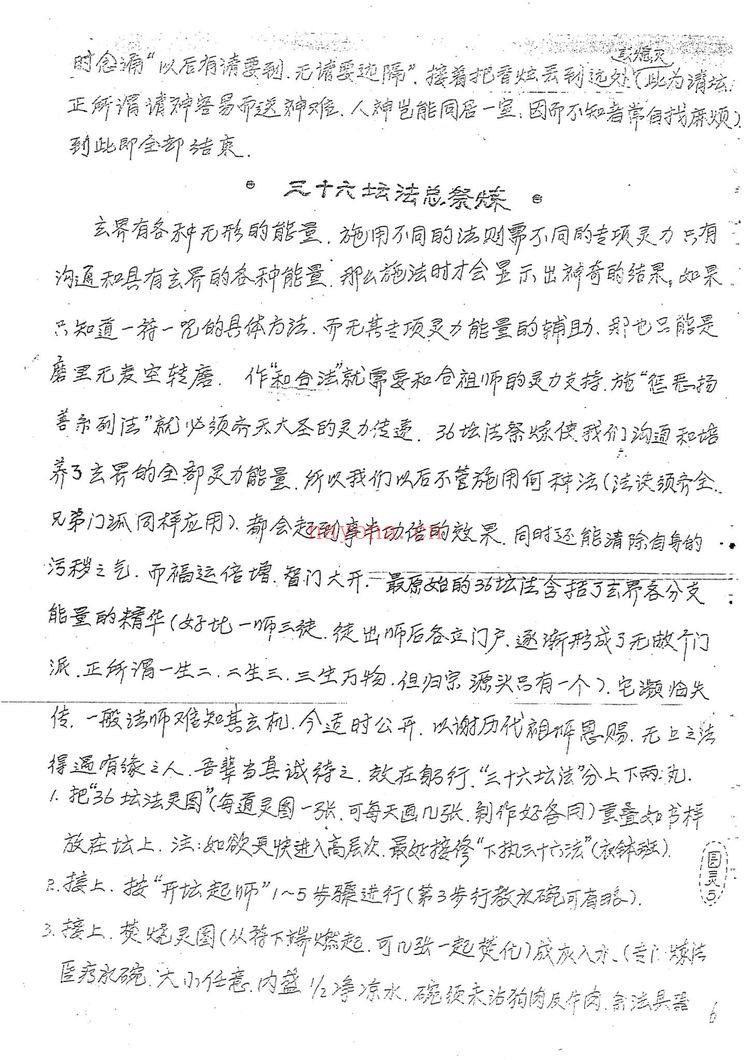 时念诵“以后有请要到.无请要远隔”.接着把香炷丢到远处(此为清坛.
正所谓请神容易而送神难.人神岂能同居一室.因而不知者常自找麻烦)
到此即全部结束.
三十六坛法总祭炼
玄界有各种无形的能量.施用不同的法则需不同的专项灵力.只有
沟通和具有玄界的各种能量.那么施法时才会显示出神奇的结果。如果
只知道一符一咒的具体方法.而无其专项灵力能量的辅助.那也只能是
磨里无麦空转磨.作“和合法”就需要和合祖师的灵力支持.施“惩恶扬
善系列法”就必须齐天大圣的灵力传递.36坛法祭炼使我们沟通和培
养了玄界的全部灵力能量.所以我们以后不管施用何种法(法诀须齐全.
兄弟门派同样应用).都会起到事半功倍的效果.同时还能清除自身的
污秽之气.而福运倍增.智门大开.最原始的36坛法含括了玄界各分支
能量的精华(好比一师三徒.徒出师后各立门户.逐渐形成了无数个门
派.正所谓一生二.二生三.三生万物.但归宗源头只有一个).它濒临失
传.一般法师难知其玄机.今适时公开.以谢历代祖师恩赐.无上之法
得遇有缘之人.吾辈当真诚待之.效在躬行.“三十六坛法”分上下两
1.把“36坛法灵图”(每道灵图一张.可每天画几张.制作好备同)重叠如书样
放在坛上.注:如欲更快进入高层次.最好接修“下执三十六法”
2.接上.按“开坛起师”1~5步骤进行(第3步行教水碗可省略).
3.接上.焚烧灵图(从符下端燃起.可几张一起焚化)成灰入水.(专门炼法
医疗水碗.大小任意.内盛1/2净凉水.碗须未沾狗肉及牛肉.
nayona.cn
6